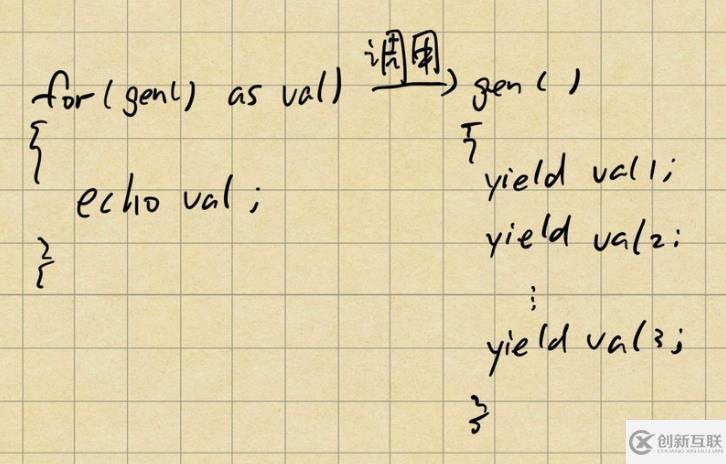 for(gen() as val)
{
echo val;
}
调用
gen()
{
yield val1;
yield val2;
⋮
yield val3;
}
创新互联
CHUANG XIN HU LIAN